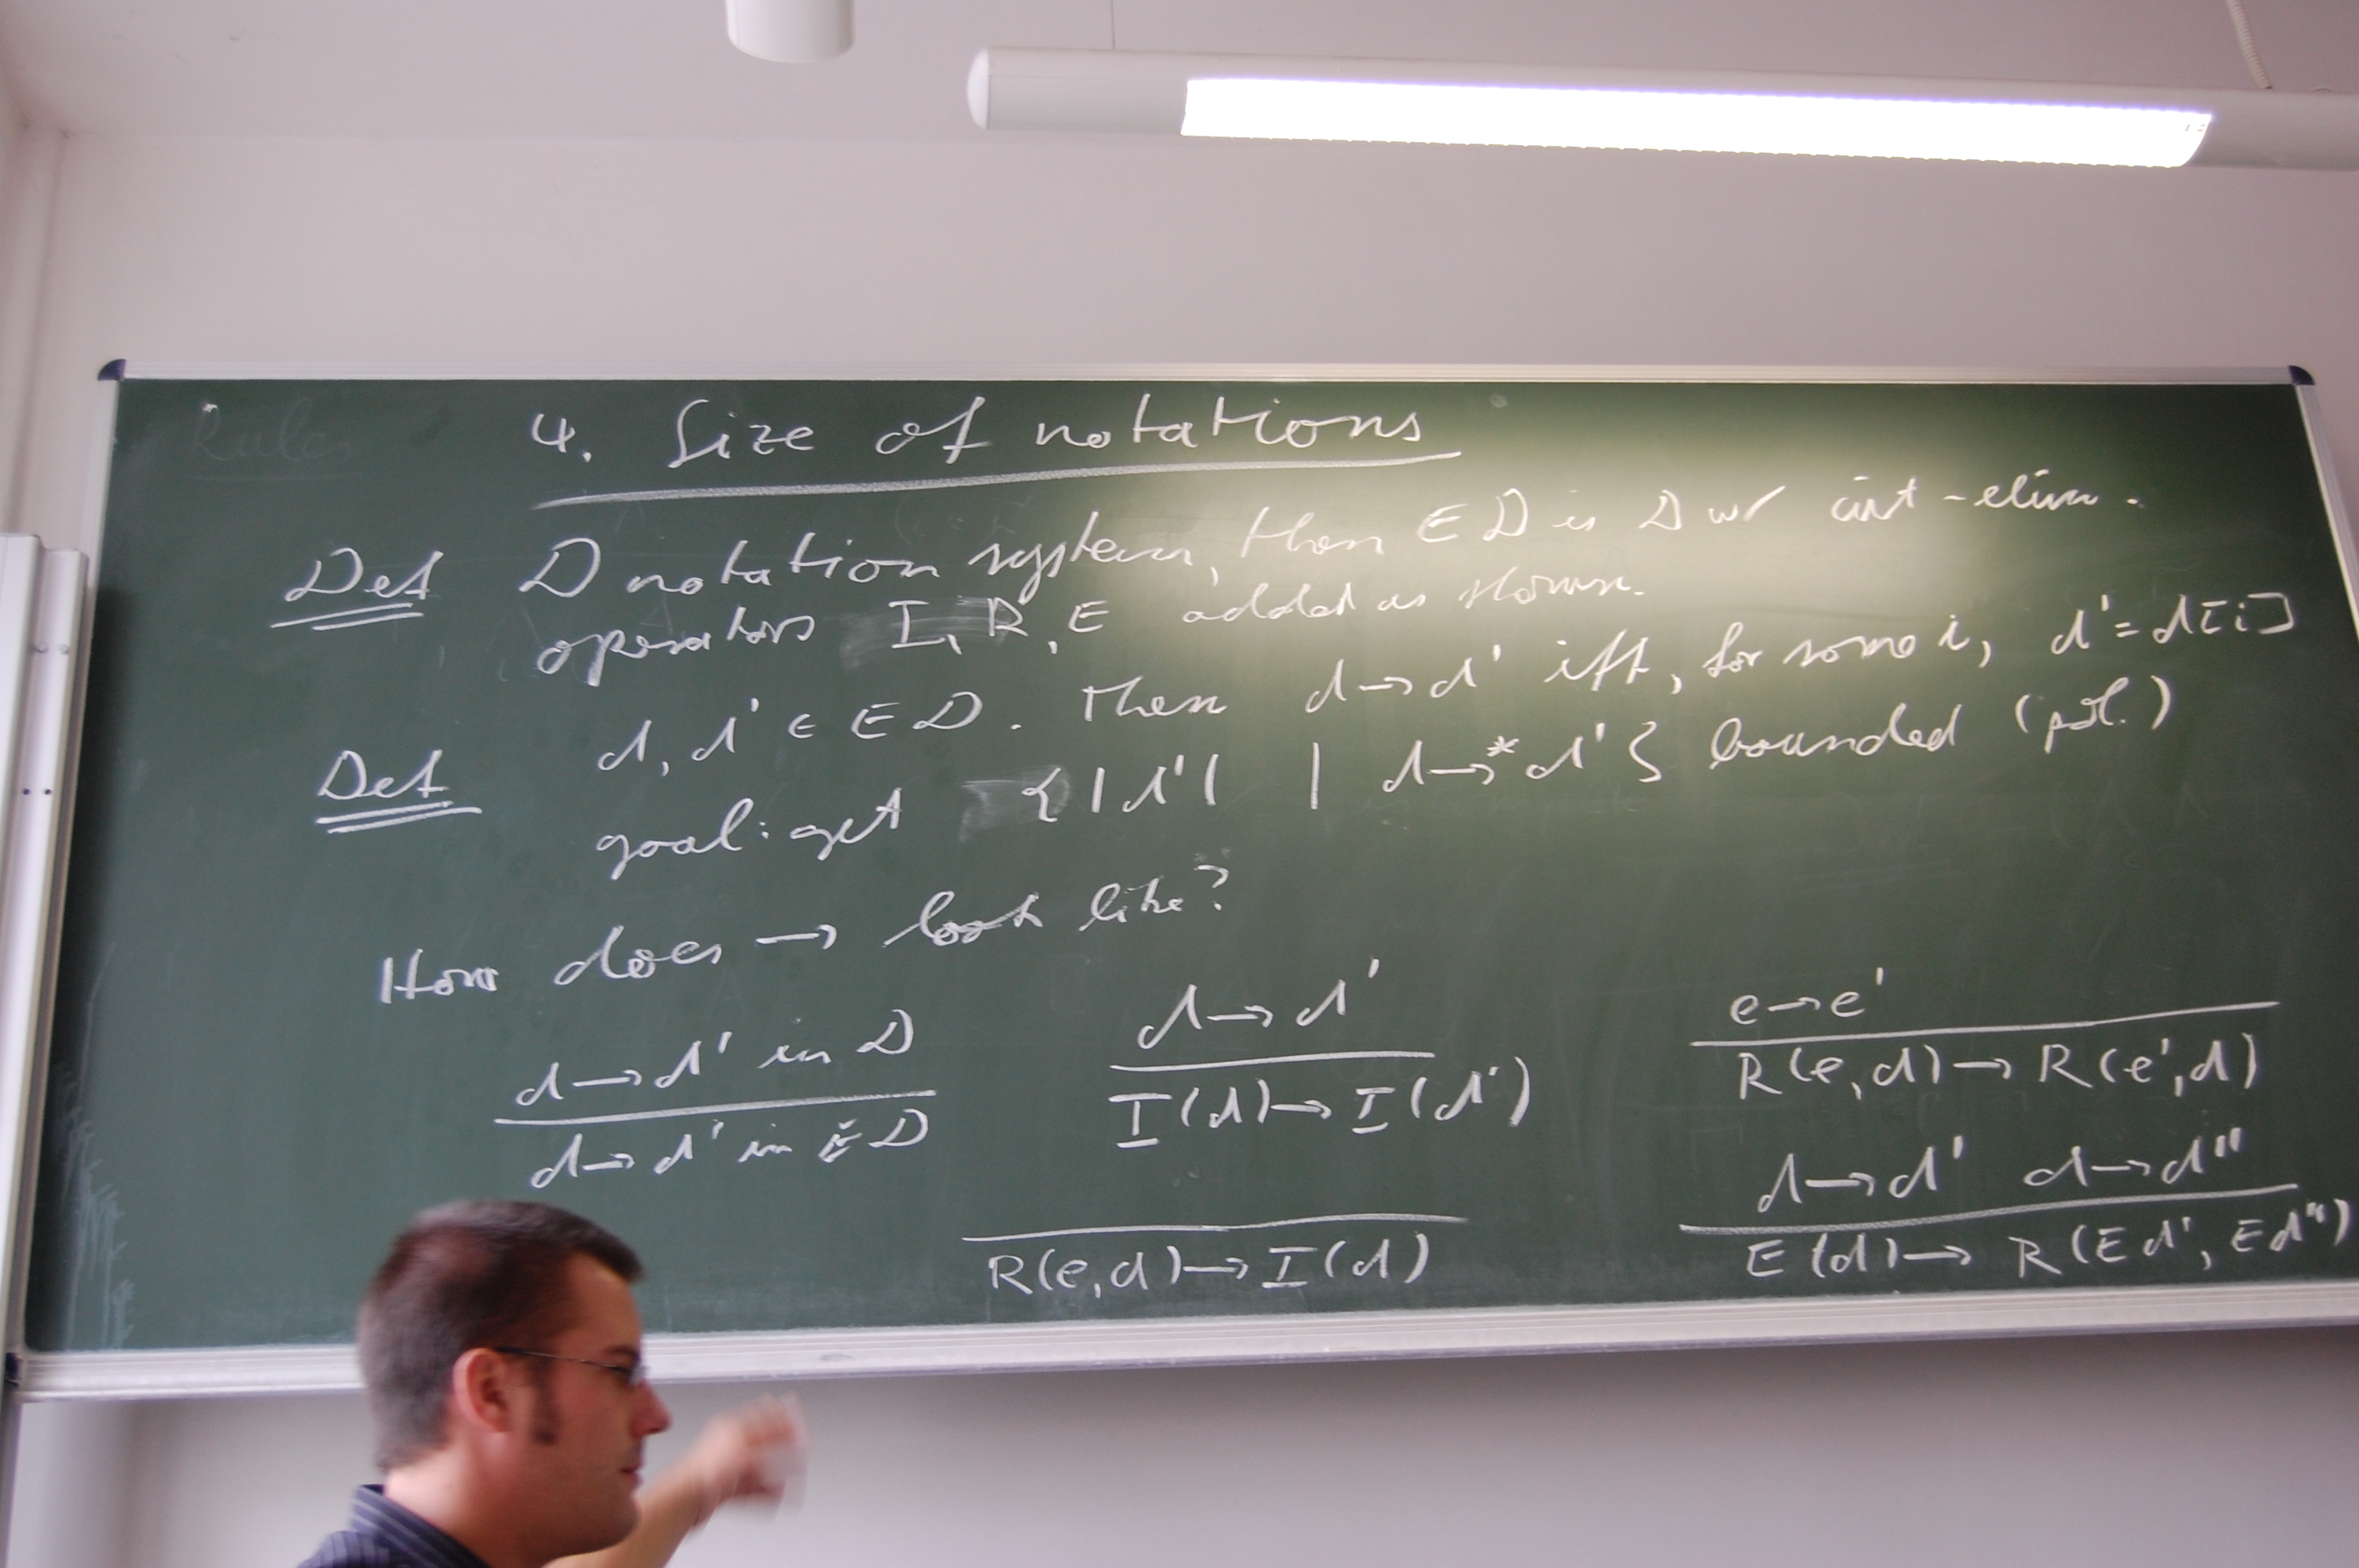 Rules
4. Size of notations
Def D notation system, then ED is D w/ cut-elim.
operators I, R, E added as shown.
Def d, d' ∈ ED. Then d → d' iff, for some i, d' = d[i]
goal: get {|d'| | d →* d'} bounded (pol.)
How does → look like?
d → d' in D
d → d' in ED
d → d'
I(d) → I(d')
e → e'
R(e,d) → R(e',d)
R(e,d) → I(d)
d → d' d → d''
E(d) → R(Ed', Ed'')